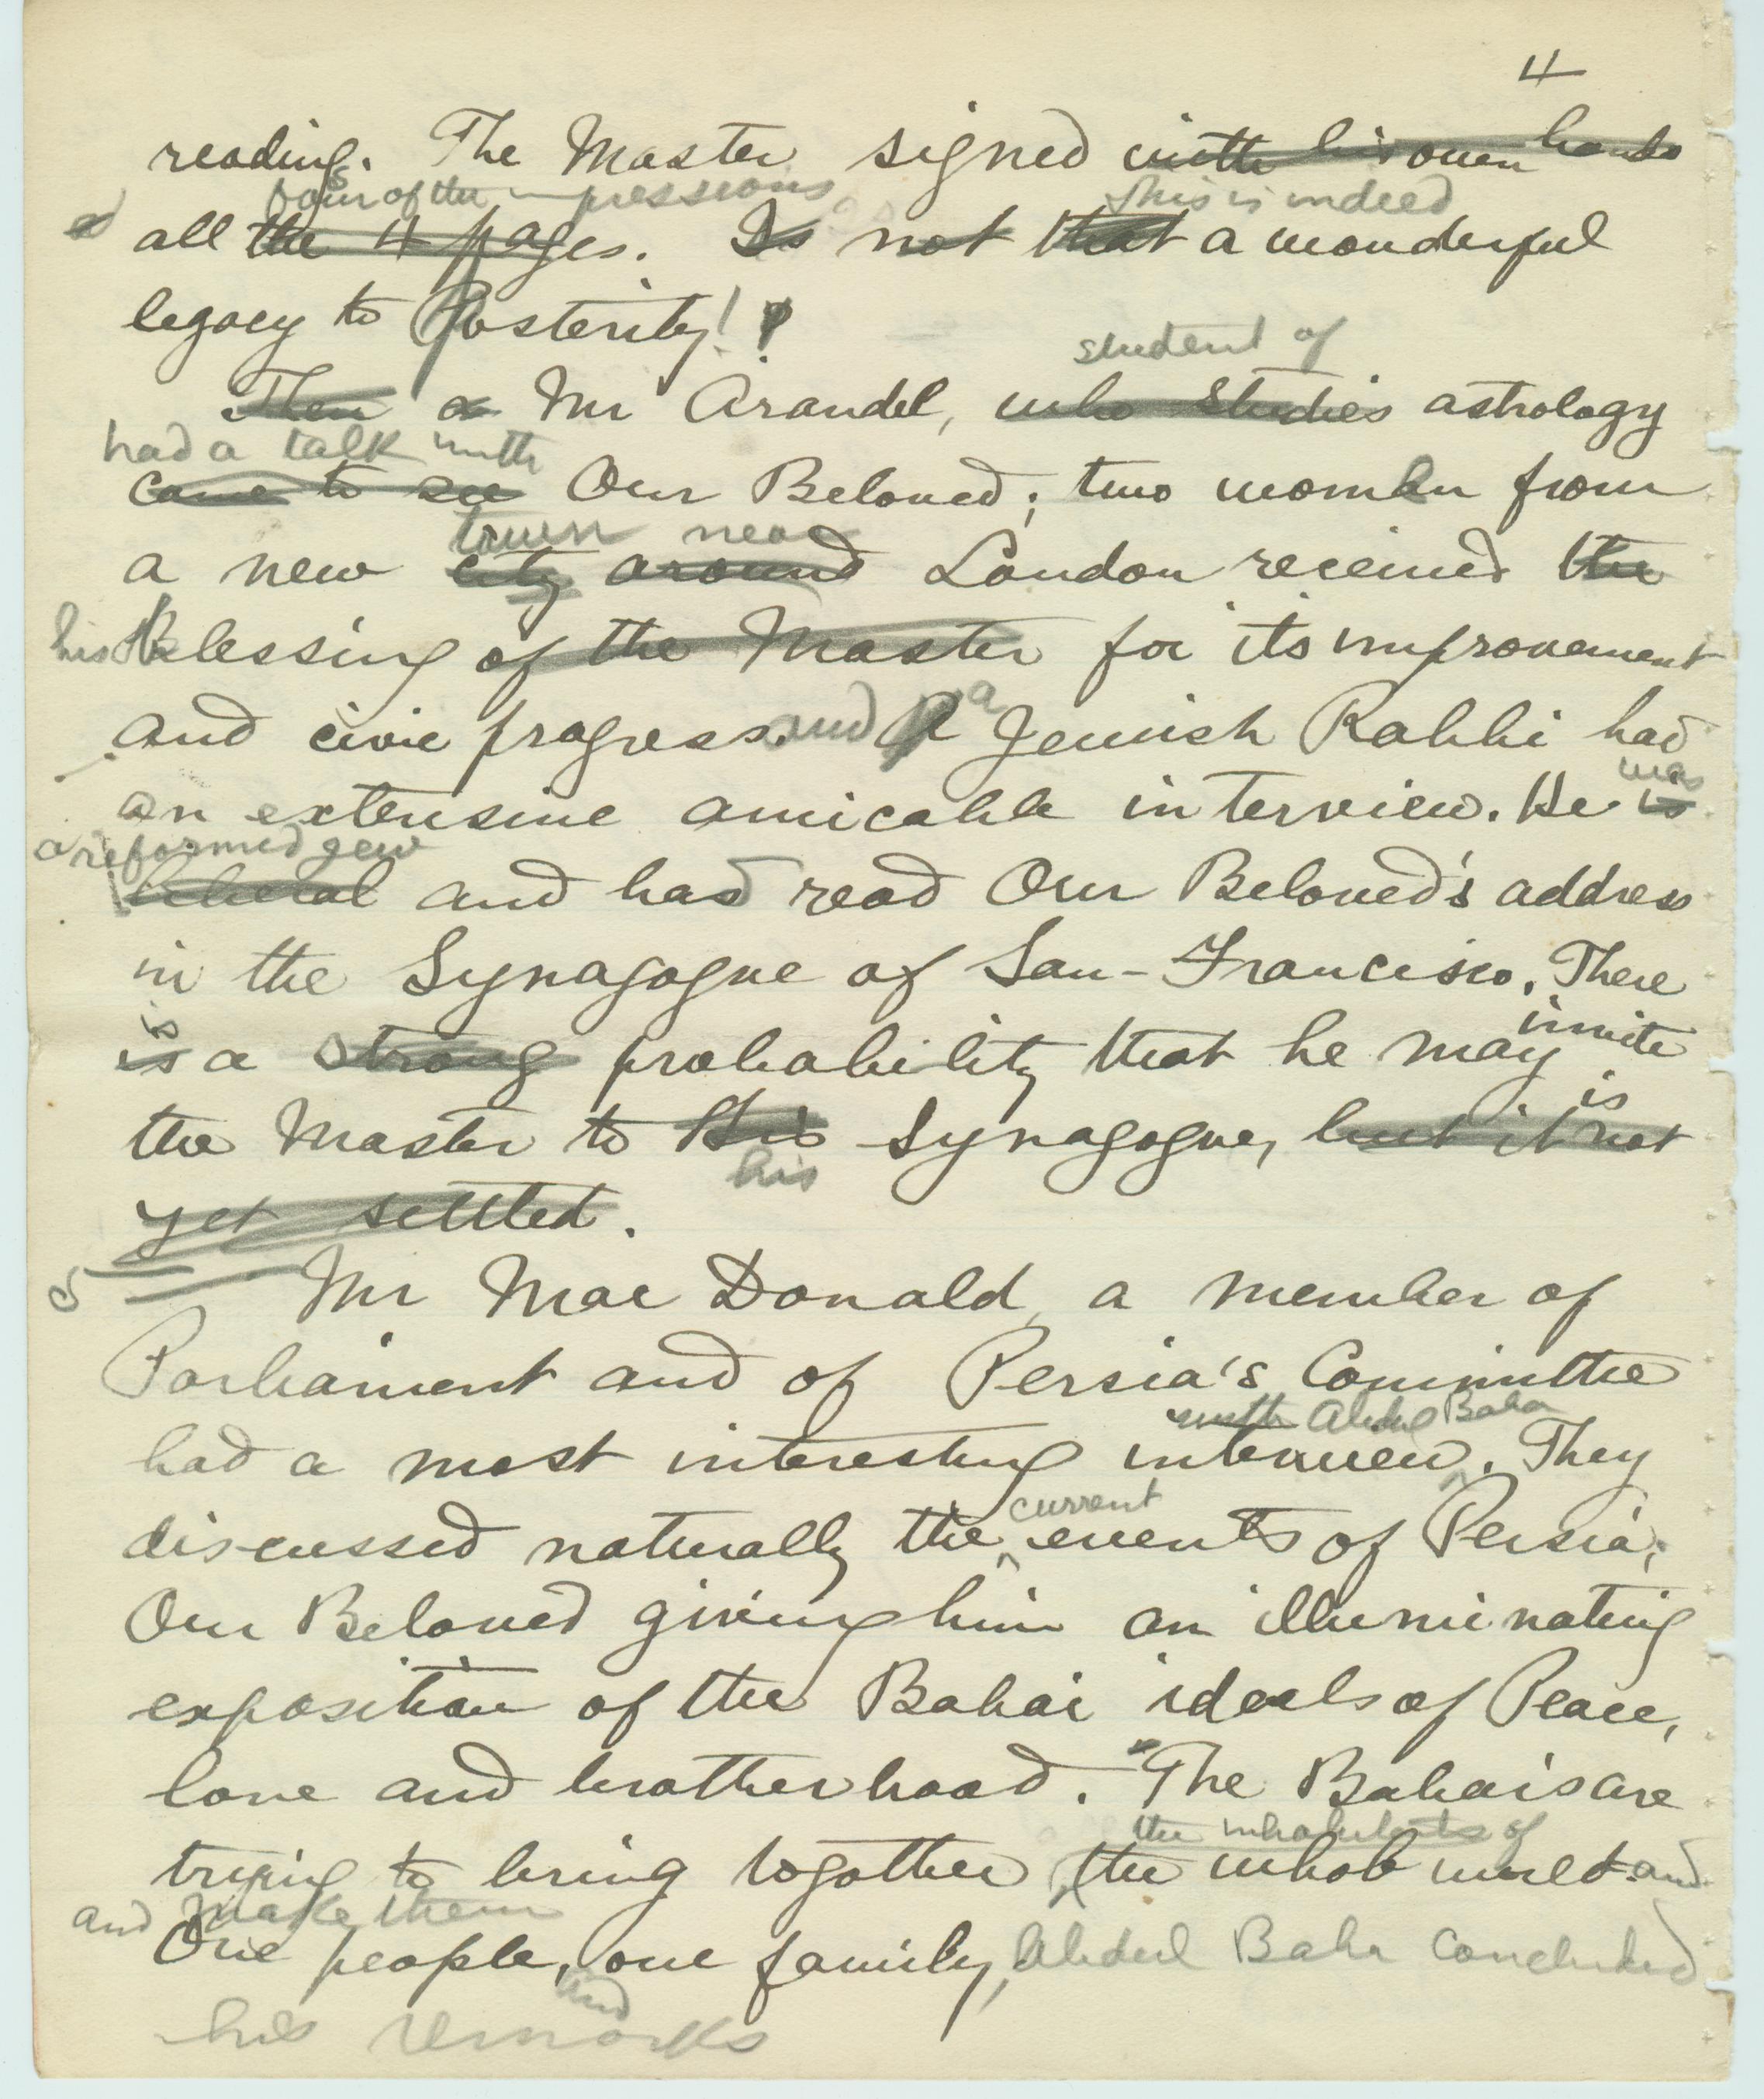 4
reading. The Master signed with his own hands
four of the impressions This is indeed
all the 4 pages. Is not that a wonderful
legacy to Posterity!
student of
Then a Mr Arandel, who studies astrology
had a talk with
came to see Our Beloved; two women from
town near
a new city around London received the
his Blessing of the Master for its improvement
and civic progress. and A a Jewish Rabbi had
was
an extensive amicable interview. He is
a reformed jew
liberal and had read Our Beloved's address
in the Synagogue of San-Francisco. There
is invite
is a strong probability that he may
is
the Master to His Synagogue, but it not
his
yet settled.
Mr Mac Donald, a member of
Parliament and of Persia's Committee
with Abdul Baha
had a most interesting interview. They
current
discussed naturally the events of Persia;
Our Beloved giving him an illuminating
exposition of the Bahai ideals of Peace,
love and brotherhood. "The Bahais are
the inhabitants of
trying to bring together the whole world and
and make them
One people, one family, Abdul Baha concluded
and
his remarks